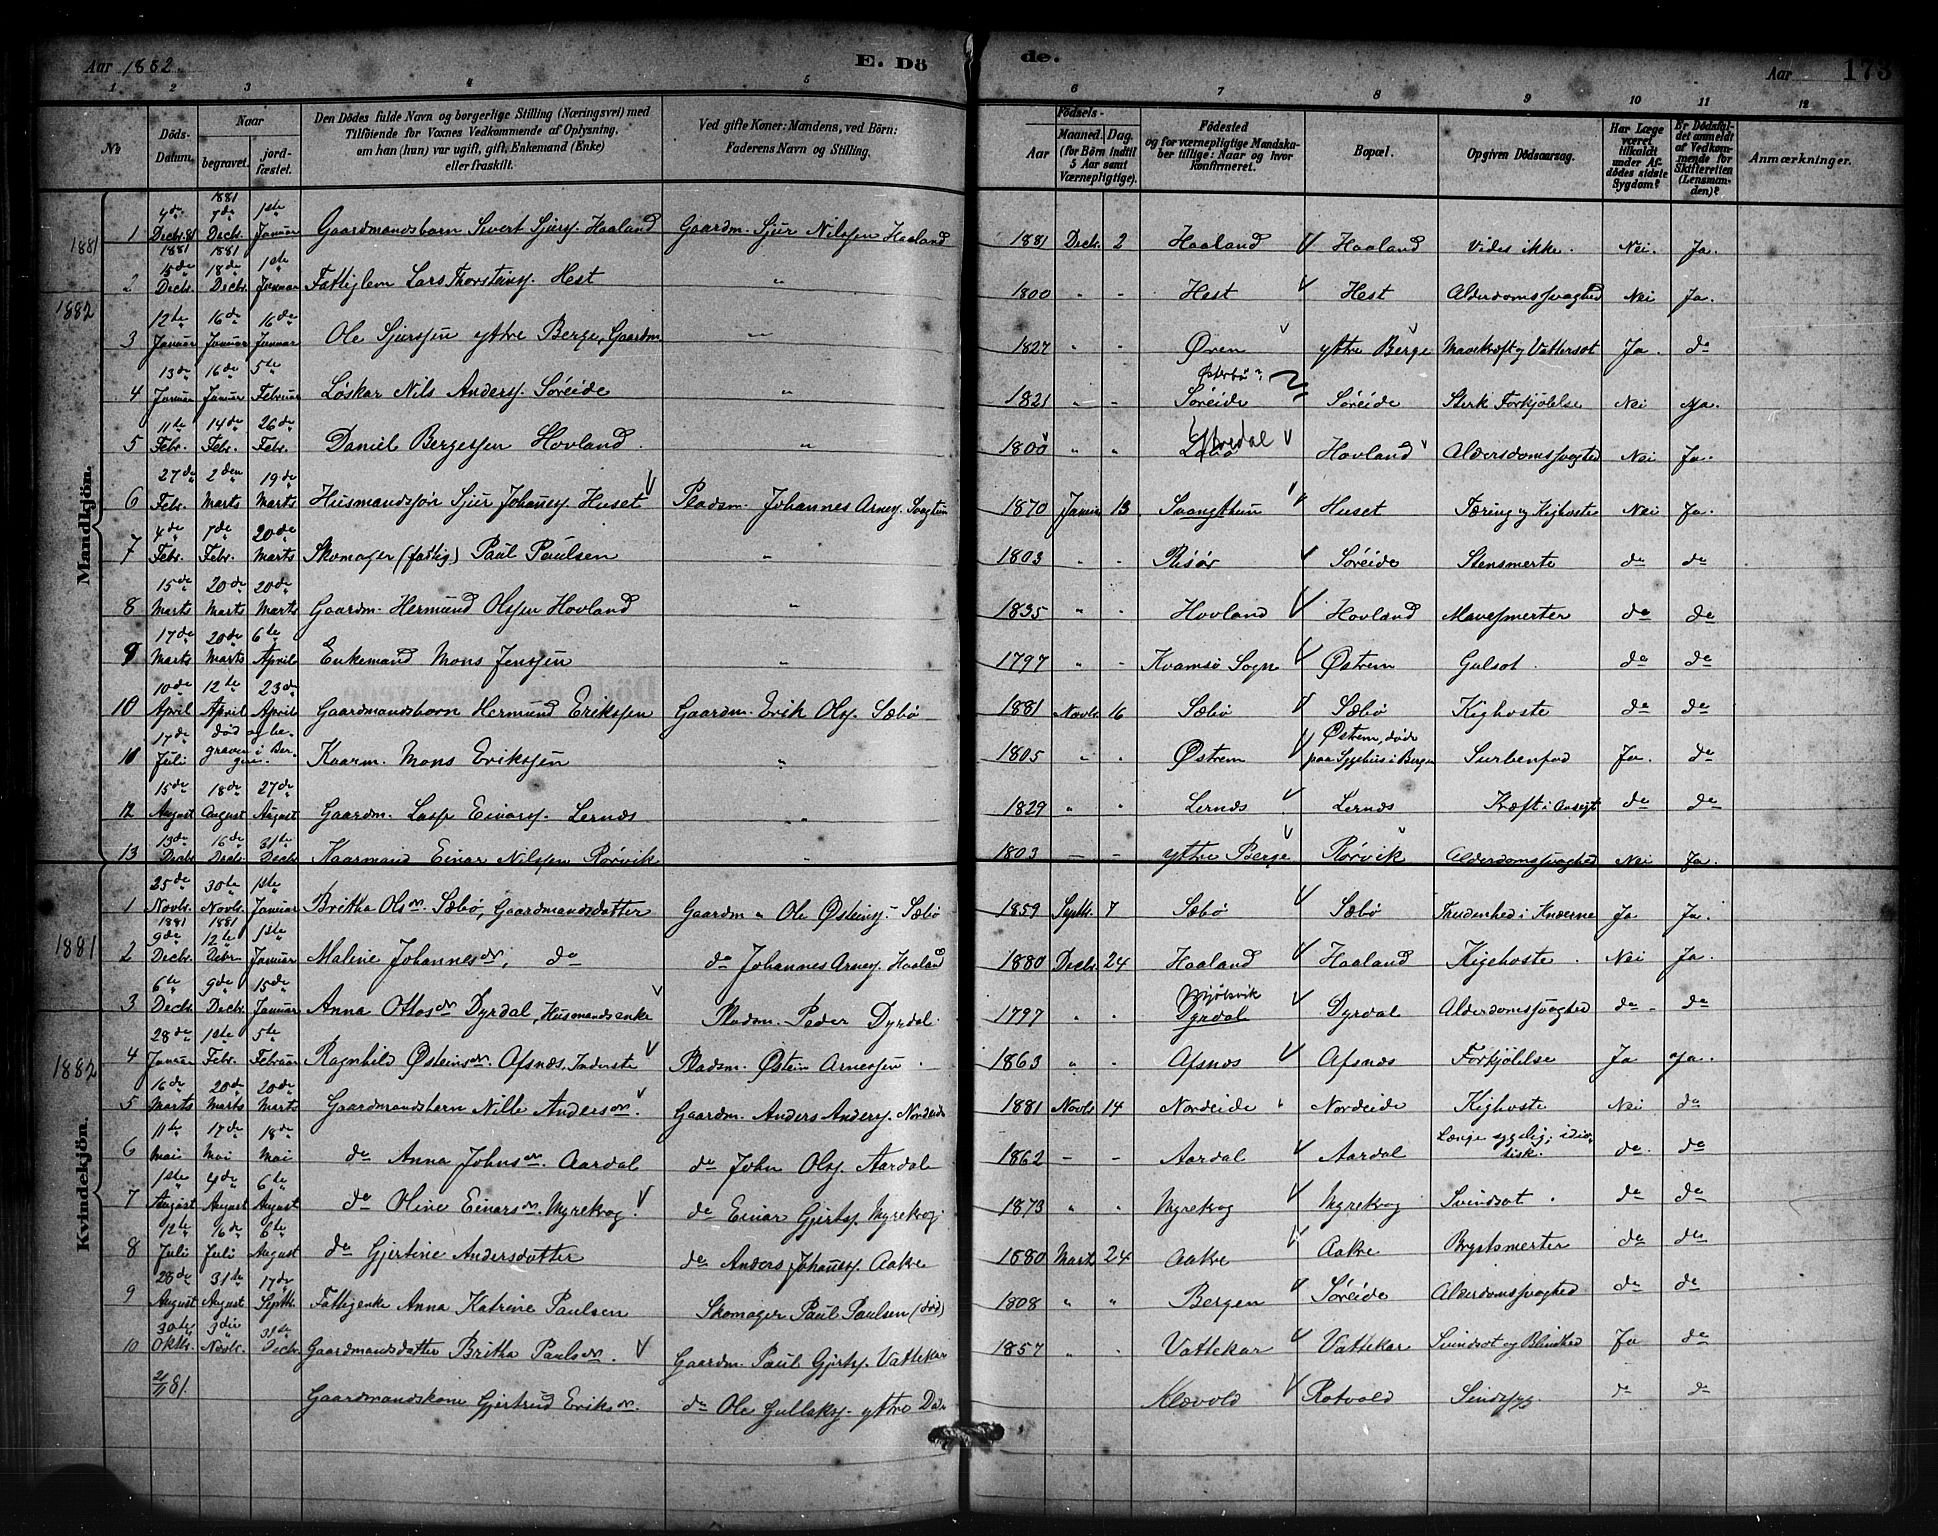 Aar 1882. E. Dö de. Aar 173
1 2 3 4 5 6 7 8 9 10 11 12
No Döds-Datum. Naar begravet. jordfæstet. Den Dödes fulde Navn og borgerlige Stilling (Næringsvei) med Tilföiende for Voxnes Vedkommende af Oplysning, om han (hun) var ugift, gift, Enkemand (Enke) eller fraskilt. Ved gifte Koner: Mandens, ved Börn: Faderens Navn og Stilling. Födsels- Aar Maaned. Dag. (for Börn indtil 5 Aar samt Værnepligtige). Födested og for værnepligtige Mandskaber tillige: Naar og hvor konfirmeret. Bopæl. Opgiven Dödsaarsag. Har Læge været tilkaldt under Afdödes sidste Sygdom? Er Dödsfaldet anmeldt af Vedkommende for Skifteretten (Lensmanden)? Anmærkninger.
Mandkjön.
1881 1 4de Decbr. 81 1881 7de Decbr. 1ste Januar Gaardmandsbarn Sivert Sjurs. Haaland Gaardm. Sjur Nilssen Haaland 1881 Decbr. 2 Haaland Haaland Vides ikke. Nei. Ja.
2 1881 15de Decbr. 1881 18de Decbr. 1ste Januar Fattiglem Lars Thorstens. Hest " 1800 " " Hest Hest Alderdomssvaghed Nei Ja.
1882 3 12te Januar 16de Januar 16de Januar Ole Sjurssen yttre Berge, Gaardm " 1827 " " Øren ytre Berge Mavekræft og Vattersot Ja. do
4 13de Januar 16de Januar 5te Februar Løskar Nils Anders. Søreide " 1821 " " Søreide Søreide Sterk Forkjølelse Nei Ja.
5 11te Febr. 14de Febr. 26de Febr. Daniel Bergessen Hovland. " 1800 " " Hovland Aldersdomssvaghed Nei Ja.
6 27de Febr. 2den Marts 19de Marts Husmandssøn Sjur Johanes. Huset Pladsm. Johannes Arnes. 1870 Januar 13 Svangthun Huset Tæring og Kighoste Nei Ja.
7 4de Febr. 7de Febr. 20de Marts Skomager (fattig) Paul Paulsen " 1803 " " Risør Søreide Stensmerte do do
8 15de Marts 20de Marts 20de Marts Gaardm. Hermund Olssen Hovland " 1835 " " Hovland Hovland Mavesmerter do do
9 17de Marts 20de Marts 6te April Enkemand Mons Jenssen " 1797 " " Kvamsø Sogn Østrem Gulsot. do do
10 10de April 12te April 23de April Gaardmandsbarn Hermund Erikssen Gaardm. Erik Ols. Sæbø 1881 Novbr. 16 Sæbø Sæbø Kighoste do do
11 17de Juli død og begraven i Bergen. Kaarm. Mons Erikssen " 1805 " " Østrem Østrem, døde paa Sygehus i Bergen Surbenfod Ja. do
12 15de August 18de August 27de August Gaardm. Lasse Einars. Lernæs " 1829 " " Lernæs Lernæs Kræft i Ansigt do do
13 13de Decbr. 16de Decbr. 31te Decbr Kaarmand Einar Nilssen Rørvik " 1803 " " ytre Berge Rørvik Alderdomssvaghed Nei Ja.
Kvindekjön.
1881 1 25de Novbr. 1881 30te Novbr. 1881 1ste Januar Britha Olsdr. Sæbø, Gaardmandsdatter Gaardm " Ole Østeins. Sæbø 1859 Septbr. 7 Sæbø Sæbø Trudenhed i Knæerne Ja Ja.
2 9de Decbr. 12te Debr. 1ste Januar Maline Johannesdr, do do Johannes Arnes. Haaland 1880 Decbr. 24 Haaland Haaland Kighoste. Nei Ja.
3 6te Decbr. 9de Decbr. 15de Januar Anna Ottosdr Dyrdal, Husmandsenke Pladsm. Peder Dyrdal. 1797 " " Mjølsvik Dyrdal Dyrdal Alderdomssvaghed do do
1882 4 28de Januar 1ste Febr. 5te Februar Ragnhild Østeinsdr. Afsnæs, Inderste Pladsm. Østein Arnessen. 1863 " " Afsnæs Afsnæs Forkjølelse Ja Ja.
5 16de Marts 20de Marts 20de Marts Gaardmandsbarn Nille Andersdr. Gaardm. Anders Anders. Nordeide 1881 Novbr 14 Nordeide Nordeide Kighoste Nei do
6 11te Mai 17de Mai 18de Mai do Anna Johnsdr. Aardal do John Ols. Aardal 1862 " " Aardal Aardal Længe sygelig; idiotisk. do. do
7 1ste August 4de August 6te August do Oline Einarsdr. Myrekrog. do Einar Gjerts. Myrekrog. 1873 " " Myrekrog Myrekrog Svindsot. do do
8 12te Juli 16de Juli 6te August do Gjertine Andersdatter do Anders Johanes. Aakre 1880 Marts 24 Aakre Aakre Brystsmerter do do
9 28de August 31te August 17de Septbr. Fattigenke Anna Katrine Paulsen Skomager Paul Paulsen (død) 1808 " " Bergen Søreide Alderdomssvaghed do do
10 30te Oktbr. 3die Novbr. 31te Decbr. Gaardmandsdatter Britha Paulsdr. Gaardm. Paul Gjerts. Vattekar 1857 " " Vattekar Vattekar Svindsot og Blindhed Ja do
21/11 81. Gaardmandskone Gjertrud Eriksdr. do Ole Gullaks. ytre Klævold Rotvold Sindssyg. do do